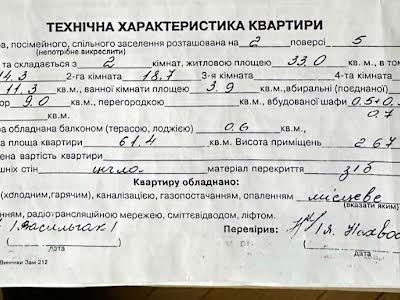 ТЕХНІЧНА ХАРАКТЕРИСТИКА КВАРТИРИ
ра, посімейного, спільного заселення розташована на 2 поверсі 5
(непотрібне викреслити)
та складається з 2 кімнат, житловою площею 33.0 кв.м., в том
14.3 2-га кімната 18,7 3-я кімната 4-та кімната
11.3 кв.м., ванної кімнати площею 3.9 кв.м., вбиральні (поєднаної)
ор 9.0 кв.м., перегородкою кв.м., вбудованої шафи 0.5+0.5
кв.м. 0,7
ра обладнана балконом (терасою, лоджією) 0.6 кв.м.
а площа квартири 61.4 кв.м. Висота приміщень 2 67
ена вартість квартири
шніх стін матеріал перекриття з/б
Квартиру обладнано:
(холодним,гарячим), каналізацією, газопостачанням, опаленням місцеве
(вказати яким)
нням, радіотрансляційною мережею, сміттєвідводом, ліфтом.
Перевірив:
дата
дата
Винники Зам 212